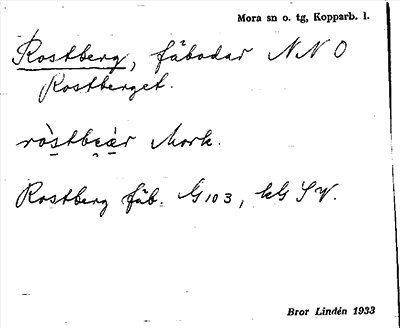 Mora sn o. tg, Kopparb. l.
Rostberg, fäbodar NNO
Rostberget.
ròstbæ̀r Mork.
Rostberg fäb. G103, kG SV.
Bror Lindén 1933